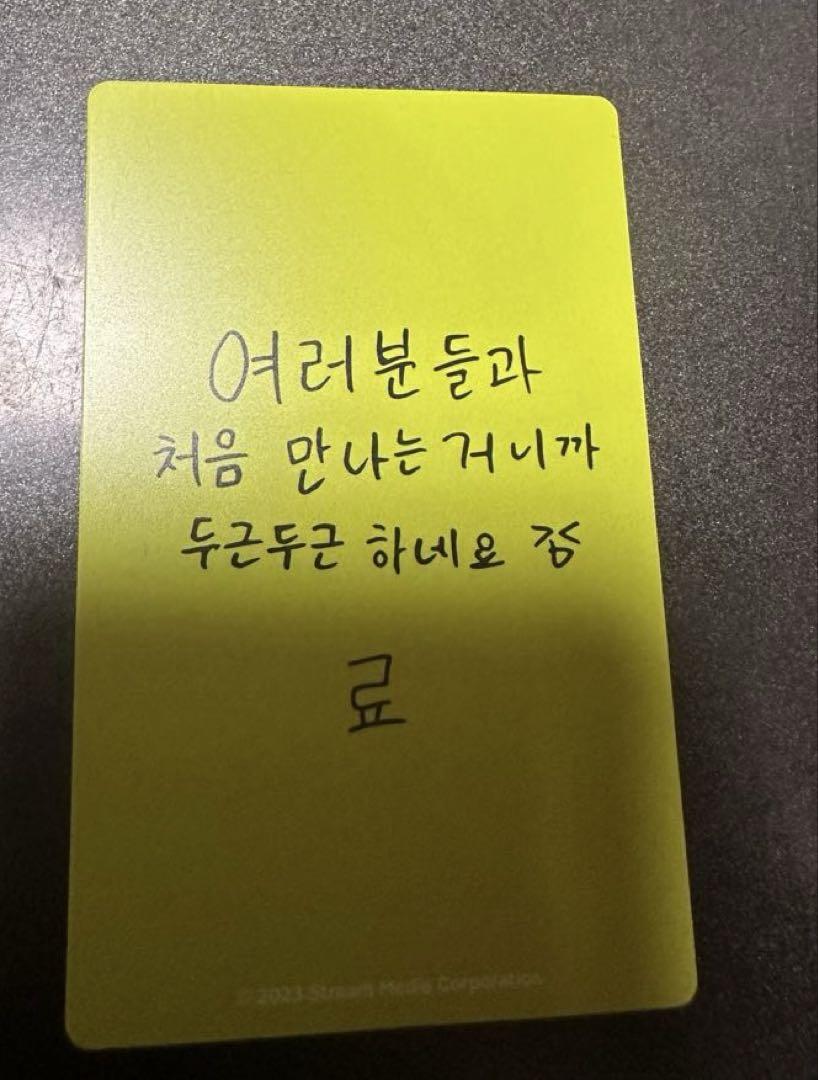 여러분들과
처음 만나는 거니까
두근두근 하네요
료
© 2023 Stream Media Corporation